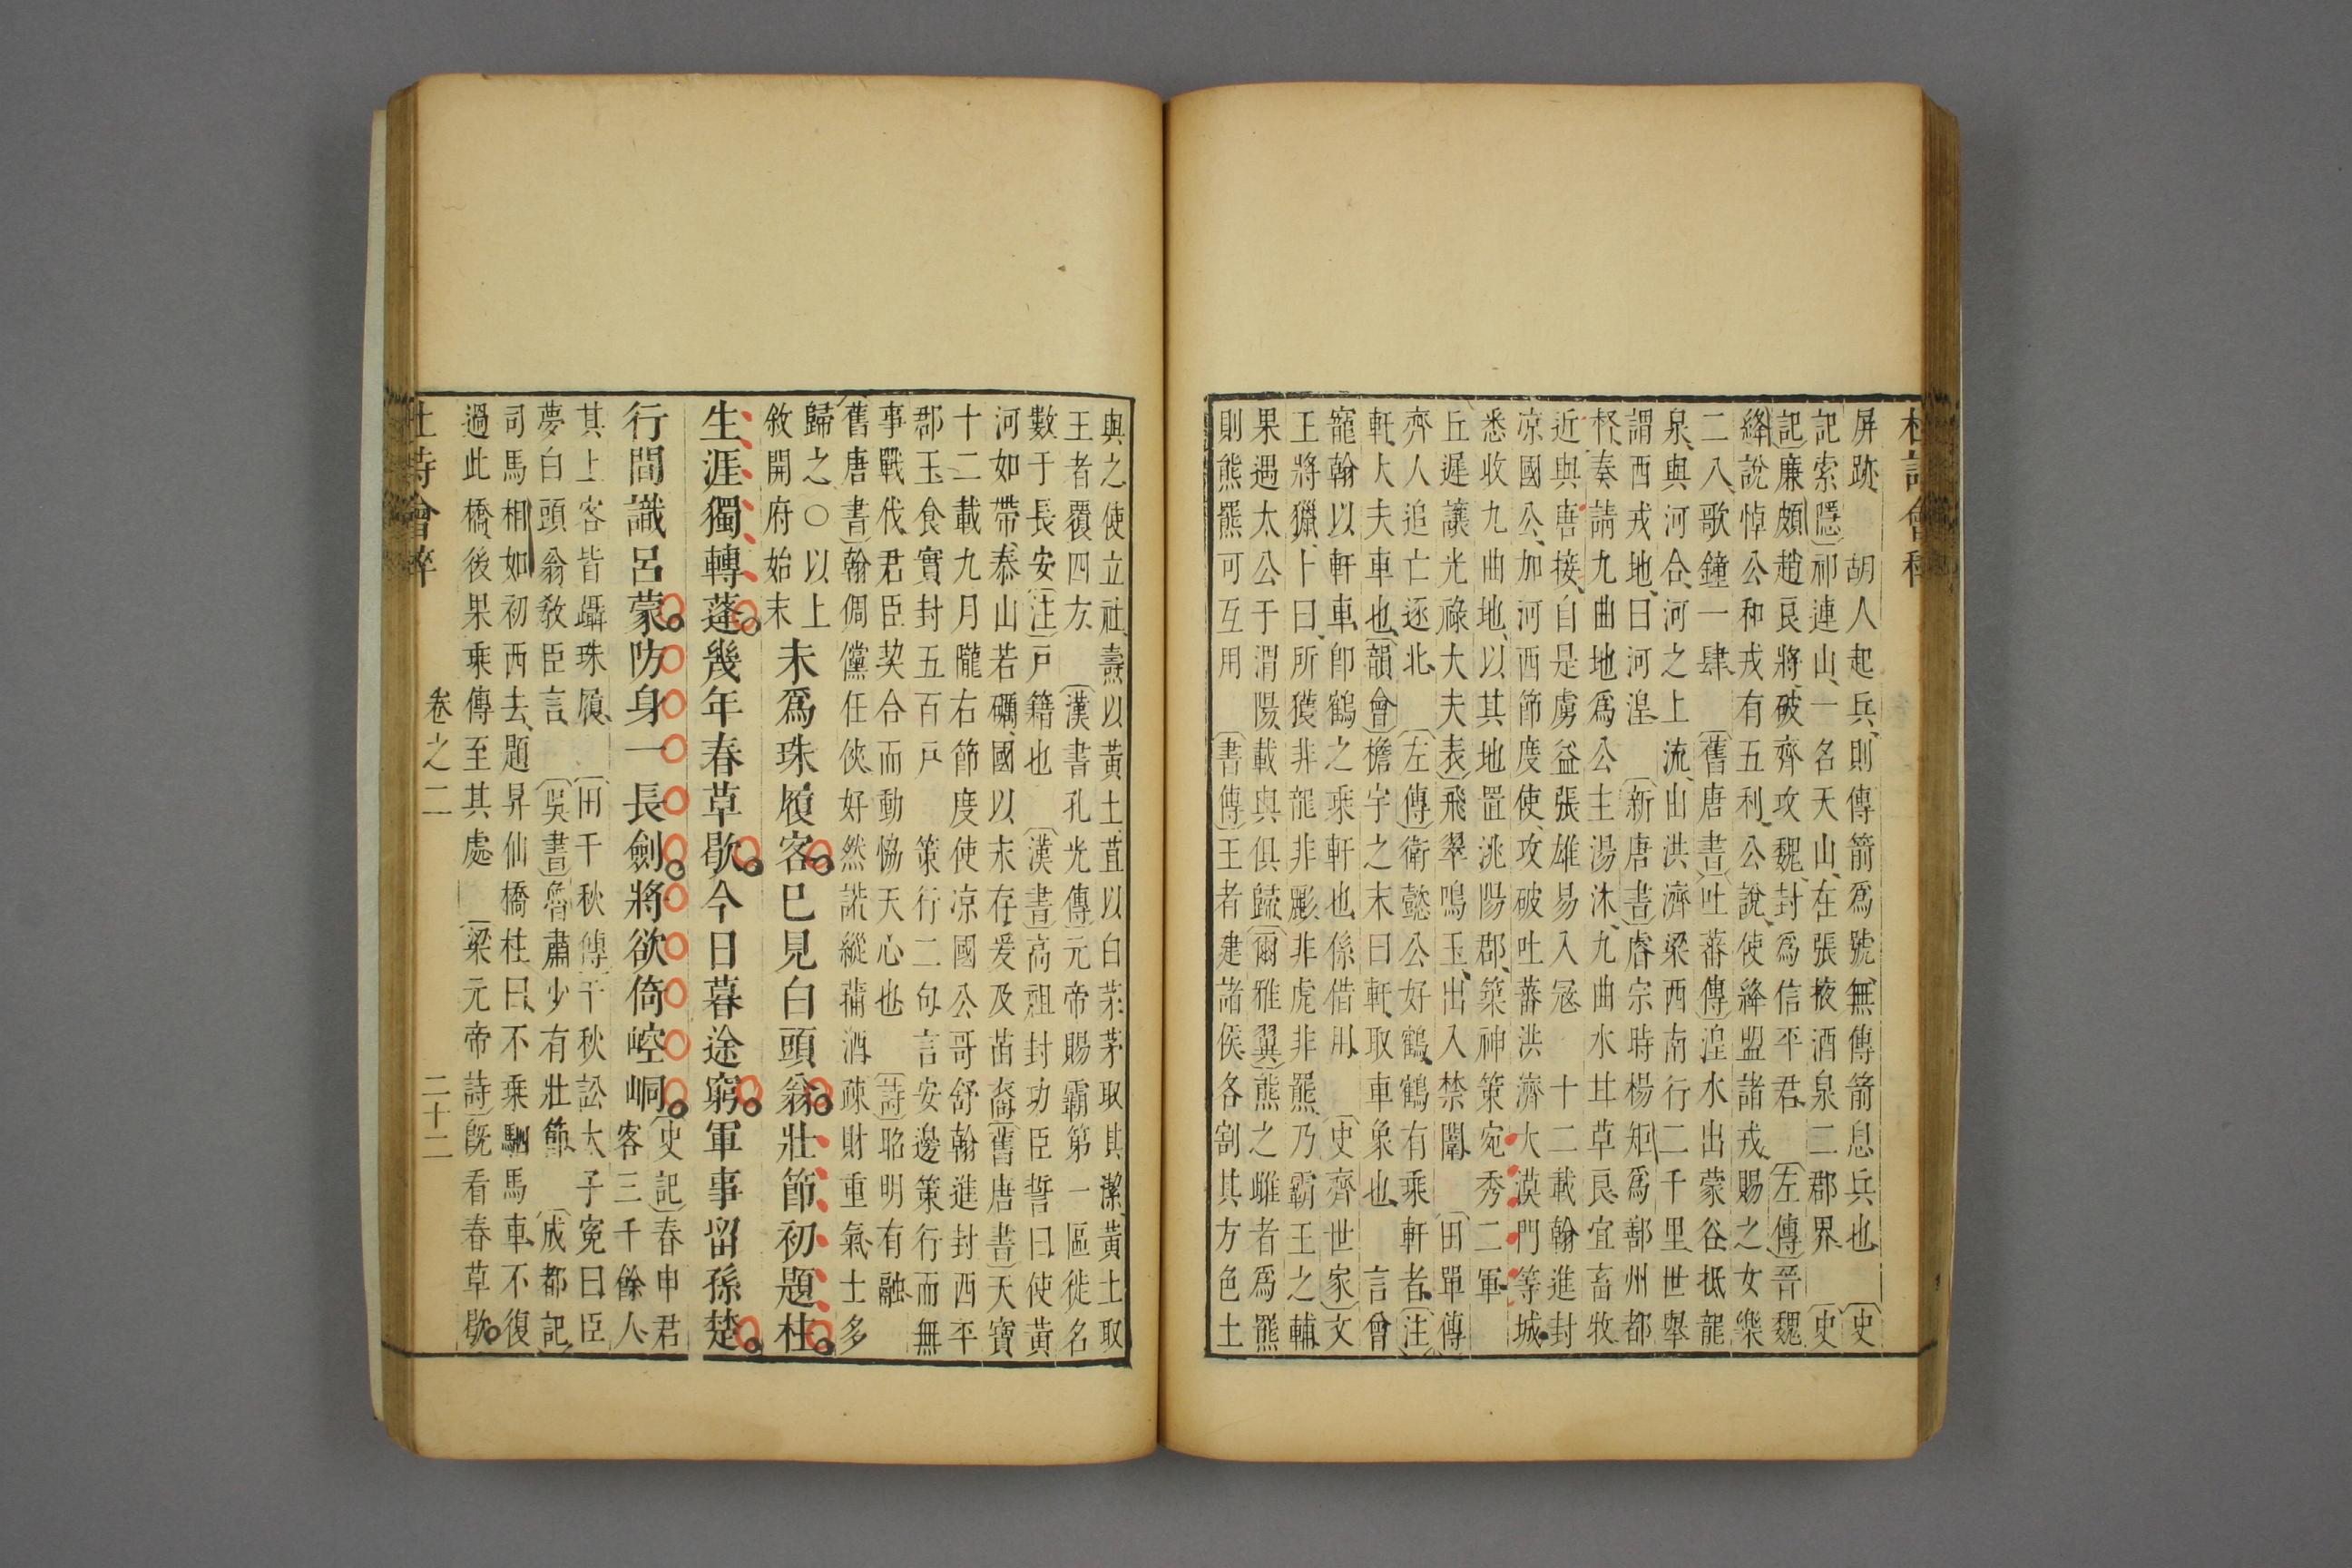 杜詩會稡
屏跡、　胡人起兵、則傳箭爲號、無傳箭息兵也　〔史
記索隱〕祁連山、一名天山、在張掖酒泉二郡界　〔史
記〕廉頗趙良將、破齊攻魏、封爲信平君、　〔左傳〕晉魏
絳說悼公和戎有五利、公說、使絳盟諸戎、賜之女樂
二八、歌鐘一肆、　〔舊唐書〕吐蕃傳〕湟水出蒙谷、抵龍
泉、與河合、河之上流、由洪濟梁西南行二千里、世舉
謂西戎地、曰河湟、　〔新唐書〕睿宗時楊矩爲鄯州都
督、奏請九曲地爲公主湯沐、九曲水甘草良、宜畜牧
近與唐接、自是虜益張雄易入寇　十二載翰進封
凉國公、加河西節度使、攻破吐蕃洪濟大漠門等城
悉收九曲地、以其地置洮陽郡、築神策宛秀二軍、
丘遲讓光祿大夫表〕飛翠鳴玉、出入禁闥、　〔田單傳
齊人追亡逐北、　〔左傳〕衛懿公好鶴、鶴有乘軒者、〔注〕
軒、大夫車也、〔韻會〕檐宇之末曰軒、取車象也、　言曾
寵翰以軒車、卽鶴之乘軒也、係借用、　〔史齊世家〕文
王將獵、卜曰、所獲非龍非彲、非虎非羆、乃霸王之輔、
果遇太公于渭陽、載與俱歸〔爾雅翼〕熊之雌者爲羆
則熊羆可互用　〔書傳〕王者建諸侯、各割其方色土
與之使立社、燾以黃土、苴以白茅、茅取其潔、黃土取
王者覆四方　〔漢書孔光傳〕元帝賜霸第一區、徙名
數于長安〔注〕戸籍也　〔漢書〕高祖封功臣誓曰、使黃
河如帶、泰山若礪、國以末存、爰及苗裔〔舊唐書〕天寶
十二載九月隴右節度使凉國公哥舒翰進封西平
郡王食實封五百戸　策行二句言安邊策行而無
事戰伐、君臣契合而動恊天心也　〔詩〕昭明有融、
〔舊唐書〕翰倜儻任俠、好然諾、縱蒱酒、疎財重氣、士多
歸之〇以上
敘開府始末
未爲珠履客已見白頭翁壯節初題柱
生涯獨轉蓬幾年春草歇今日暮途窮軍事留孫楚
行間識呂蒙防身一長劍將欲倚崆峒
〔史記〕春申君
客三千餘人
其上客皆躡珠履、　〔田千秋傳〕千秋訟太子寃曰、臣
夢白頭翁敎臣言、　〔吳書〕魯肅少有壯節、　〔成都記
司馬相如初西去、題昇仙橋柱曰、不乗駟馬車、不復
過此橋、後果乘傳至其處　〔梁元帝詩〕旣看春草歇、
杜詩會稡　卷之二　二十二